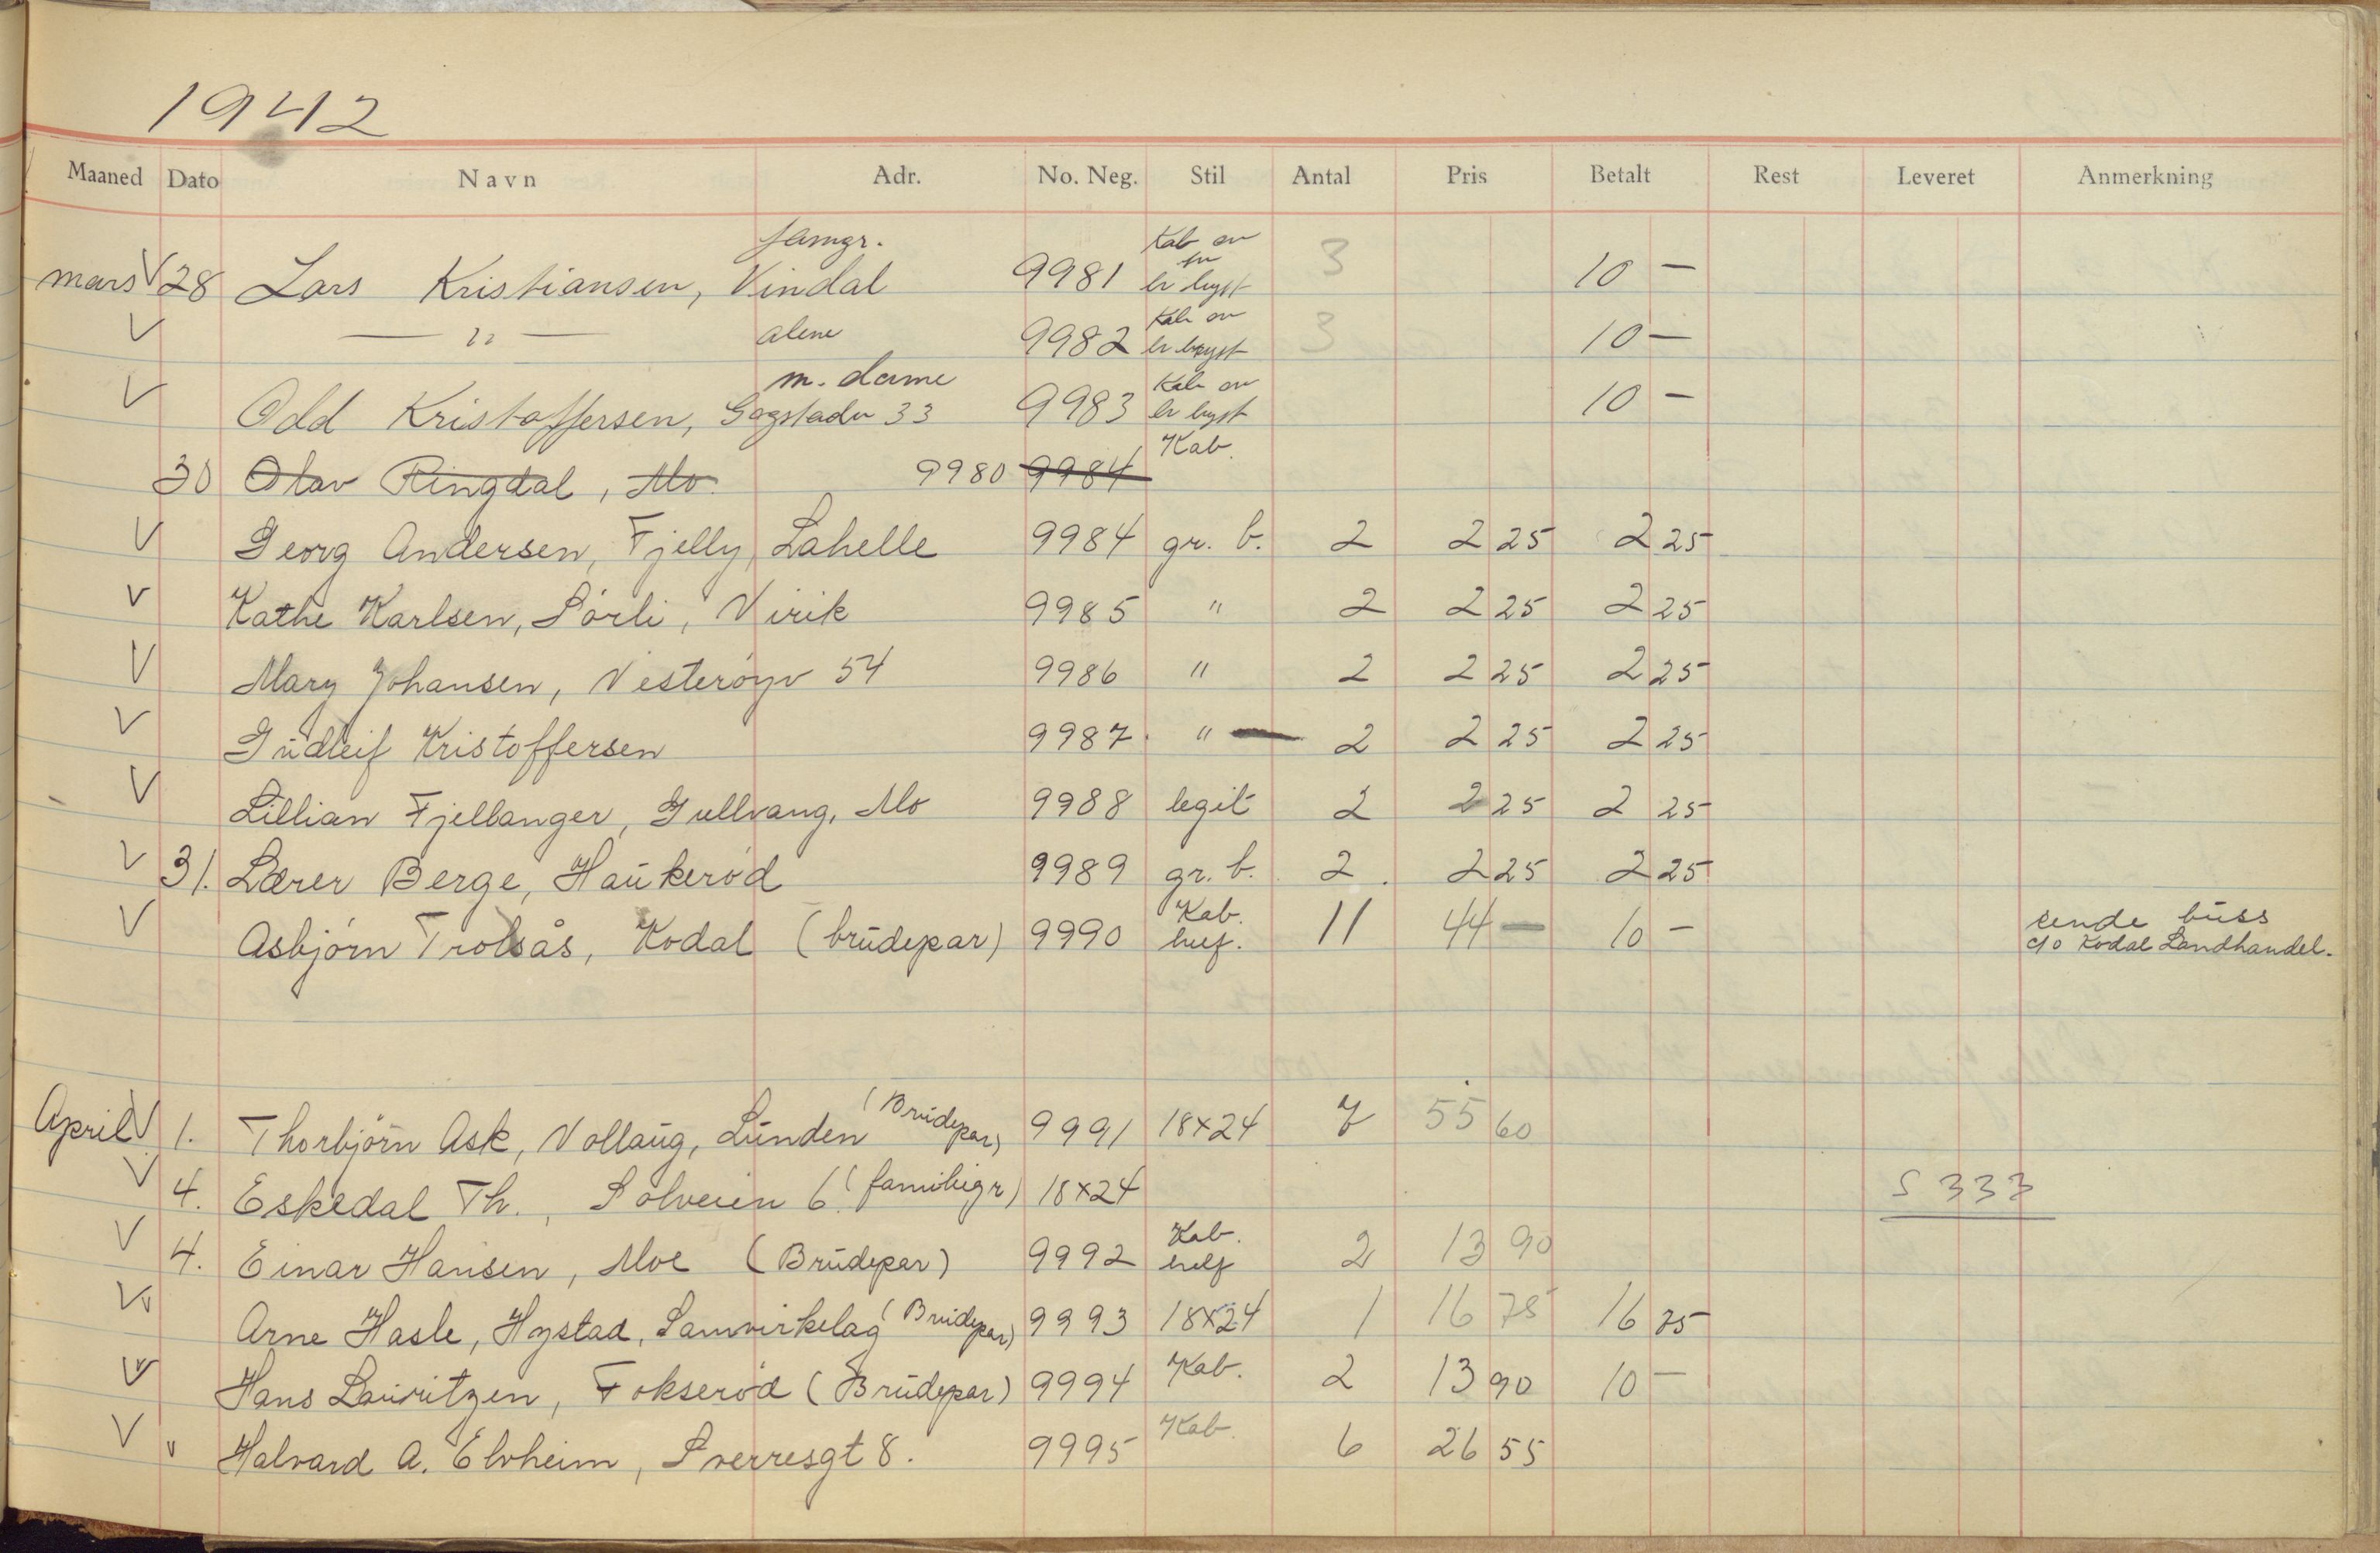 1942
Maaned Dato Navn Adr. No. Neg. Stil Antal Pris Betalt Rest Leveret Anmerkning
famgr. Kab
mars V 28 Lars Kristiansen, Vindal 9981 3 10 -
V — " — alene 9982 Kab 3 10 -
m. dame Kab
V Odd Kristoffersen, 33 9983 10 -
30 Olav Ringdal, Mo 9980 9984 Kab.
V Georg Andersen, Fjelly, Lahelle 9984 gr. b. 2 2 25 2 25
V Kathe Karlsen, Sörli, Virik 9985 " 2 2 25 2 25
V Mary Johansen, Vesteröyv 54 9986 " 2 2 25 2 25
V Gudleif Kristoffersen 9987 " 2 2 25 2 25
V Lillian Fjellanger, Gullvang, Mo 9988 legit 2 2 25 2 25
V 31. Lærer Berge, Haukeröd 9989 gr. b. 2 2 25 2 25
V Asbjörn Trolsås, Kodal (brudepar) 9990 Kab. 11 44 — 10 - sende buss
c/o Kodal Landhandel.
April V 1. Thorbjörn Ask, Vollaug, Lunden (Brudepar) 9991 18x24 7 55 60
V 4. Eskedal Th., Solveien 6 (familiegr) 18x24 S 333
V 4. Einar Hansen, Moe (Brudepar) 9992 Kab. 2 13 90
V Arne Hasle, Hystad, Samvirkelag (Brudepar) 9993 18x24 1 16 75 16 75
V Hans Lauritzen, Fokseröd (Brudepar) 9994 Kab. 2 13 90 10 -
V v Halvard A. Elvheim, Sverresgt 8. 9995 Kab. 6 26 55